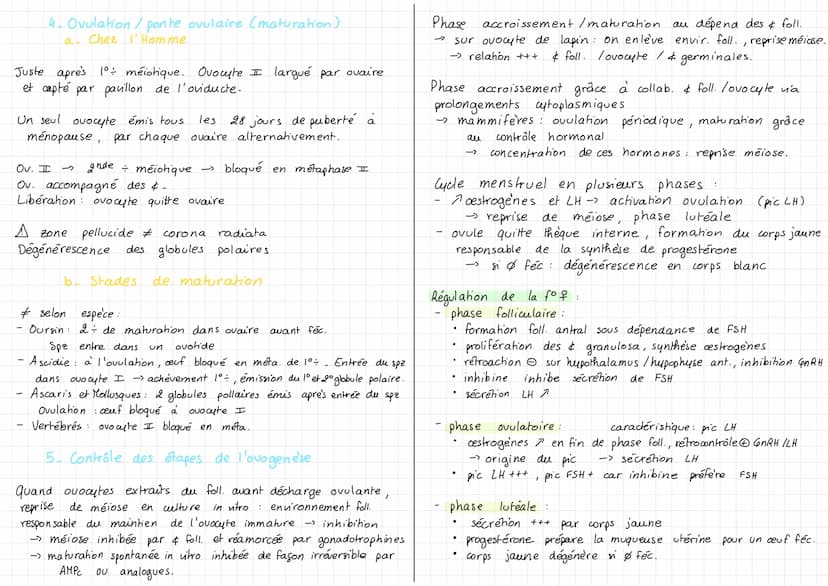 4. Ovulation / ponte ovulaire (maturation)
a. Chez l'Homme
Juste après 1° ÷ méiotique. Ovocyte II largué par ovaire
et capté par pavillon de l'oviducte.
Un seul ovocyte émis tous les 28 jours de puberté à
ménopause, par chaque ovaire alternativement.
Ov. II → 2nde ÷ méiotique → bloqué en métaphase II
Ov. accompagné des ¢.
Libération : ovocyte quitte ovaire
⚠ zone pellucide ≠ corona radiata
Dégénérescence des globules polaires
b. Stades de maturation
≠ selon espèce :
- Oursin : 2 ÷ de maturation dans ovaire avant féc.
Spz entre dans un ovotide
- Ascidie : à l'ovulation, œuf bloqué en méta. de 1° ÷. Entrée du spz
dans ovocyte I → achèvement 1° ÷, émission du 1° et 2° globule polaire.
- Ascaris et Mollusques : 2 globules pollaires émis après entrée du spz
Ovulation : œuf bloqué à ovocyte I
- Vertébrés : ovocyte II bloqué en méta.
5. Contrôle des étapes de l'ovogenèse
Quand ovocytes extraits du foll. avant décharge ovulante,
reprise de méiose en culture in vitro : environnement foll.
responsable du maintien de l'ovocyte immature → inhibition
→ méiose inhibée par ¢ foll. et réamorcée par gonadotrophines
→ maturation spontanée in vitro inhibée de façon irréversible par
AMPc ou analogues.
Phase accroissement / maturation au dépend des ¢ foll.
→ sur ovocyte de lapin : on enlève envir. foll., reprise méiose.
→ relation +++ ¢ foll. / ovocyte / ¢ germinales.
Phase accroissement grâce à collab. ¢ foll. / ovocyte via
prolongements cytoplasmiques
→ mammifères : ovulation périodique, maturation grâce
au contrôle hormonal
→ concentration de ces hormones : reprise méiose.
Cycle menstruel en plusieurs phases :
- ↗ œstrogènes et LH → activation ovulation (pic LH)
→ reprise de méiose, phase lutéale
- ovule quitte thèque interne, formation du corps jaune
responsable de la synthèse de progestérone
→ si Ø féc : dégénérescence en corps blanc
Régulation de la f° ♀ :
- phase folliculaire :
• formation foll. antral sous dépendance de FSH
• prolifération des ¢ granulosa, synthèse œstrogènes
• rétroaction ⊖ sur hypothalamus / hypophyse ant., inhibition GnRH
• inhibine inhibe sécrétion de FSH
• sécrétion LH ↗
- phase ovulatoire : caractéristique : pic LH
• œstrogènes ↗ en fin de phase foll., rétrocontrôle ⊕ GnRH / LH
→ origine du pic → sécrétion LH
• pic LH +++, pic FSH + car inhibine préfère FSH
- phase lutéale :
• sécrétion +++ par corps jaune
• progestérone prépare la muqueuse utérine pour un œuf féc.
• corps jaune dégénère si Ø féc.